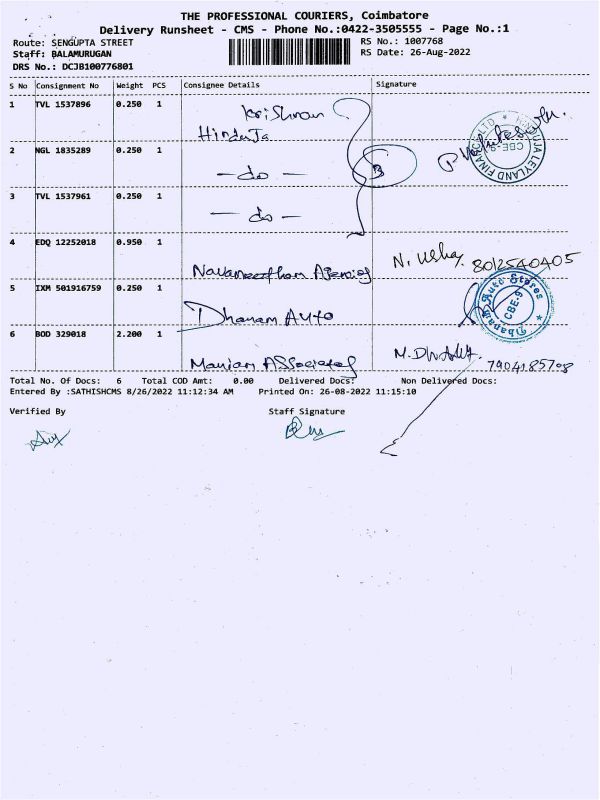 THE PROFESSIONAL COURIERS, Coimbatore
Delivery Runsheet - CMS - Phone No.:0422-3505555 - Page No.:1
Route: SENGUPTA STREET RS No.: 1007768
Staff: BALAMURUGAN RS Date: 26-Aug-2022
DRS No.: DCJB100776801
S No Consignment No Weight PCS Consignee Details Signature
1 TVL 1537896 0.250 1 Krishnan
Hinduja
2 NGL 1835289 0.250 1 - do - 3
HINDUJA LEYLAND FINANCE LTD * CBE-9
3 TVL 1537961 0.250 1 - do -
4 EDQ 12252018 0.950 1 Navaneetham Agencies N. Usha 8012540405
5 IXM 501916759 0.250 1 Dhanam Auto
Dhanam Auto Stores CBE-9
6 BOD 329018 2.200 1 Manian Associates M. 7904185708
Total No. Of Docs: 6 Total COD Amt: 0.00 Delivered Docs: Non Delivered Docs:
Entered By :SATHISHCMS 8/26/2022 11:12:34 AM Printed On: 26-08-2022 11:15:10
Verified By Staff Signature